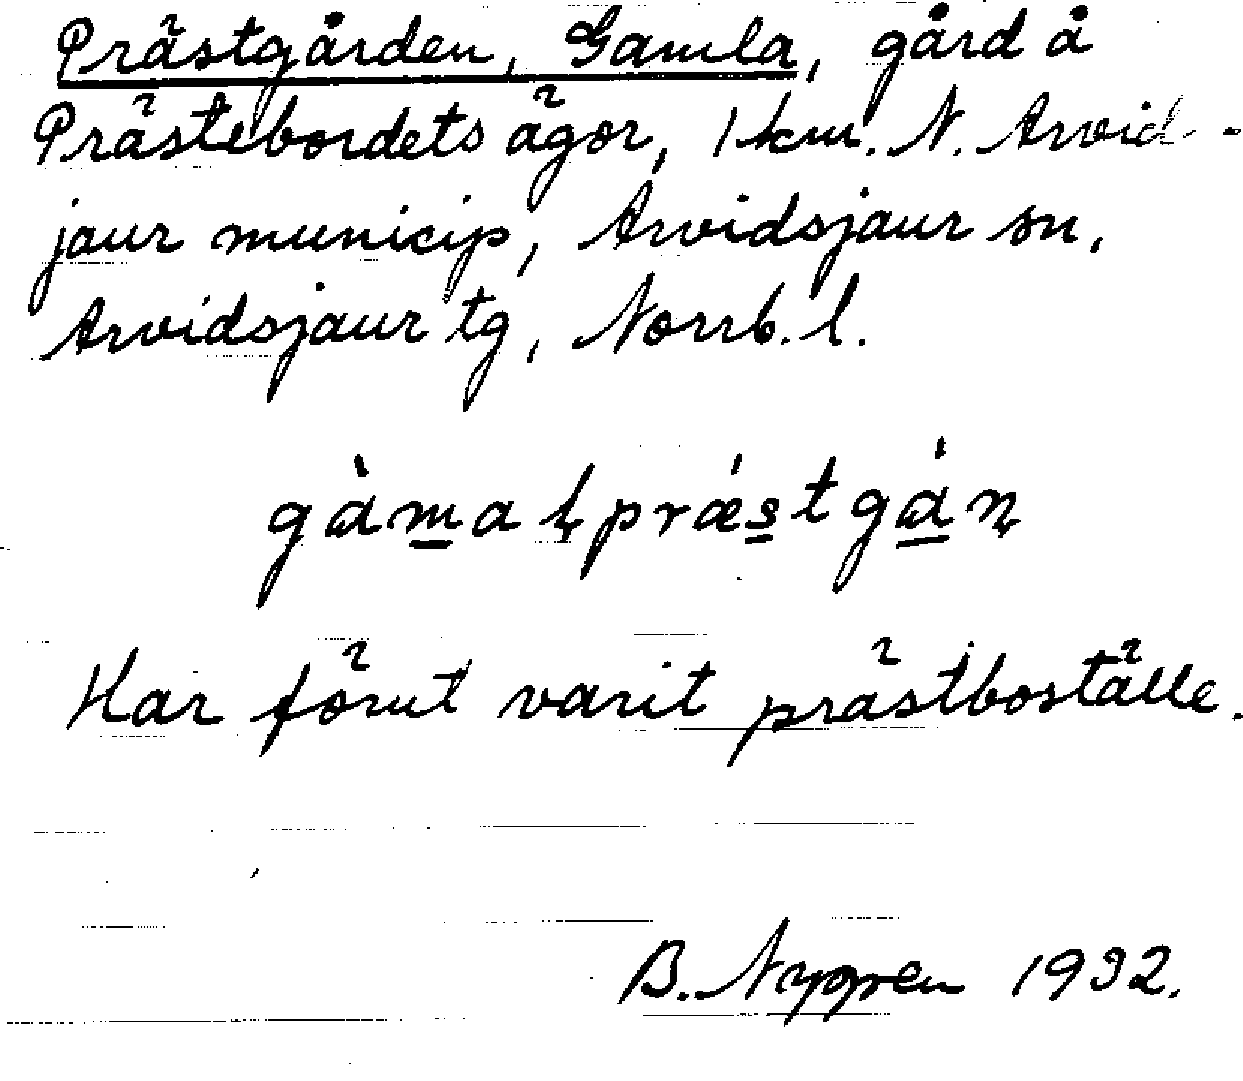 Prästgården, Gamla, gård å
Prästebordets ägor, 1 km. N. Arvid-
jaur municip, Arvidsjaur sn,
Arvidsjaur tg, Norrb. l.
gàmaḷprǽstgáṇ
Har förut varit prästboställe.
B. Nygren 1932.